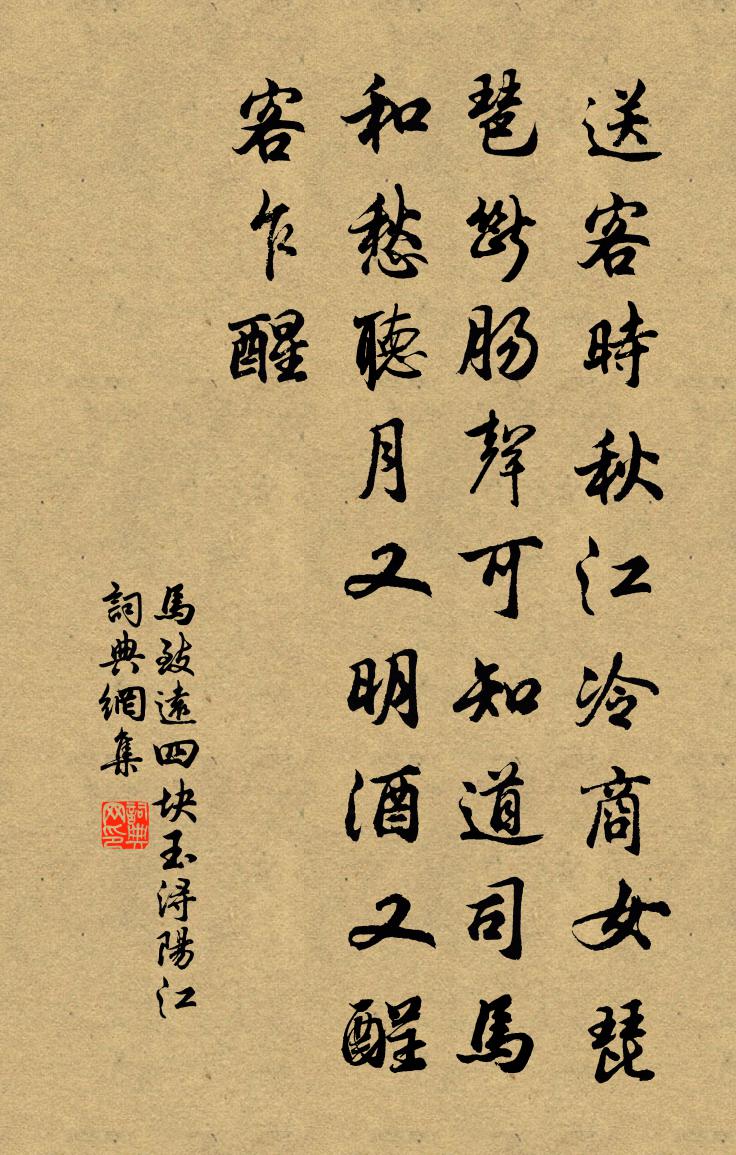 送客時秋江冷商女琵
琶斷腸聲可知道司馬
和愁聽月又明酒又酲
客乍醒
馬致遠四块玉潯陽江
詞典網集
詞典网印